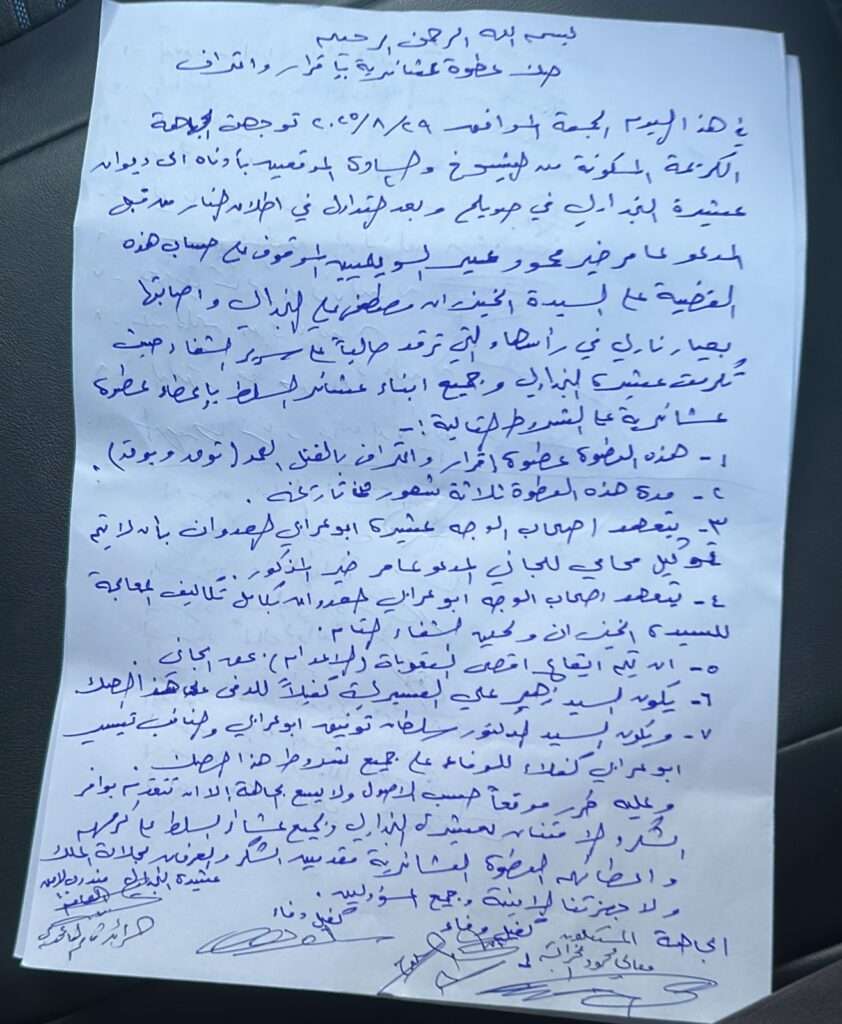 بسم الله الرحمن الرحيم
صك عطوة عشائرية بإقرار واعتراف
في هذا اليوم الجمعة الموافق ٢٠٢٥/٨/٢٩ توجهت الجاهة
الكريمة المكونة من الشيوخ والسادة الموقعين بأدناه الى ديوان
عشيرة النجداوي في صويلح وبعد التداول في اطلاق النار من قبل
المدعو عامر خير محمود السويلميين الموقوف على حساب هذه
القضية على السيدة الخيزران مصطفى علي النجداوي واصابتها
بعيار ناري في رأسها والتي ترقد حالياً على سرير الشفاء حيث
تكرمت عشيرة النجداوي وجميع ابناء عشائر السلط بإعطاء عطوة
عشائرية على الشروط التالية :-
١- هذه العطوة عطوة اقرار واعتراف بالقتل العمد
٢- مدة هذه العطوة ثلاثة شهور من تاريخه .
٣- يتعهد اصحاب الوجه عشيرة ابو عرابي العدوان بأن لا يتم
توكيل محامي للجاني المدعو عامر خير المذكور .
٤- يتعهد اصحاب الوجه ابو عرابي العدوان بكامل تكاليف المعالجة
للسيدة الخيزران ولحين الشفاء التام .
٥- ان يتم ايقاع اقصى العقوبات (الاعدام) بحق الجاني
٦- يكون السيد زهير علي كفيلاً للدفى على هذا الصك
٧- ويكون السيد الدكتور سلطان توفيق ابو عرابي والنائب تيسير
ابو عرابي كفلاء للوفاء على جميع شروط هذا الصك .
وعليه حرر موقعاً حسب الاصول ولا يسع الجاهة الا ان تتقدم بوافر
الشكر والامتنان لعشيرة النجداوي ولجميع عشائر السلط على كرمهم
واعطائهم العطوة العشائرية مقدمين الشكر والعرفان لجلالة الملك
ولاجهزتنا الامنية وجميع المسؤولين .
عشيرة النجداوي
الجاهة
كفيل وفاء
كفيل وفاء
معالي محمود